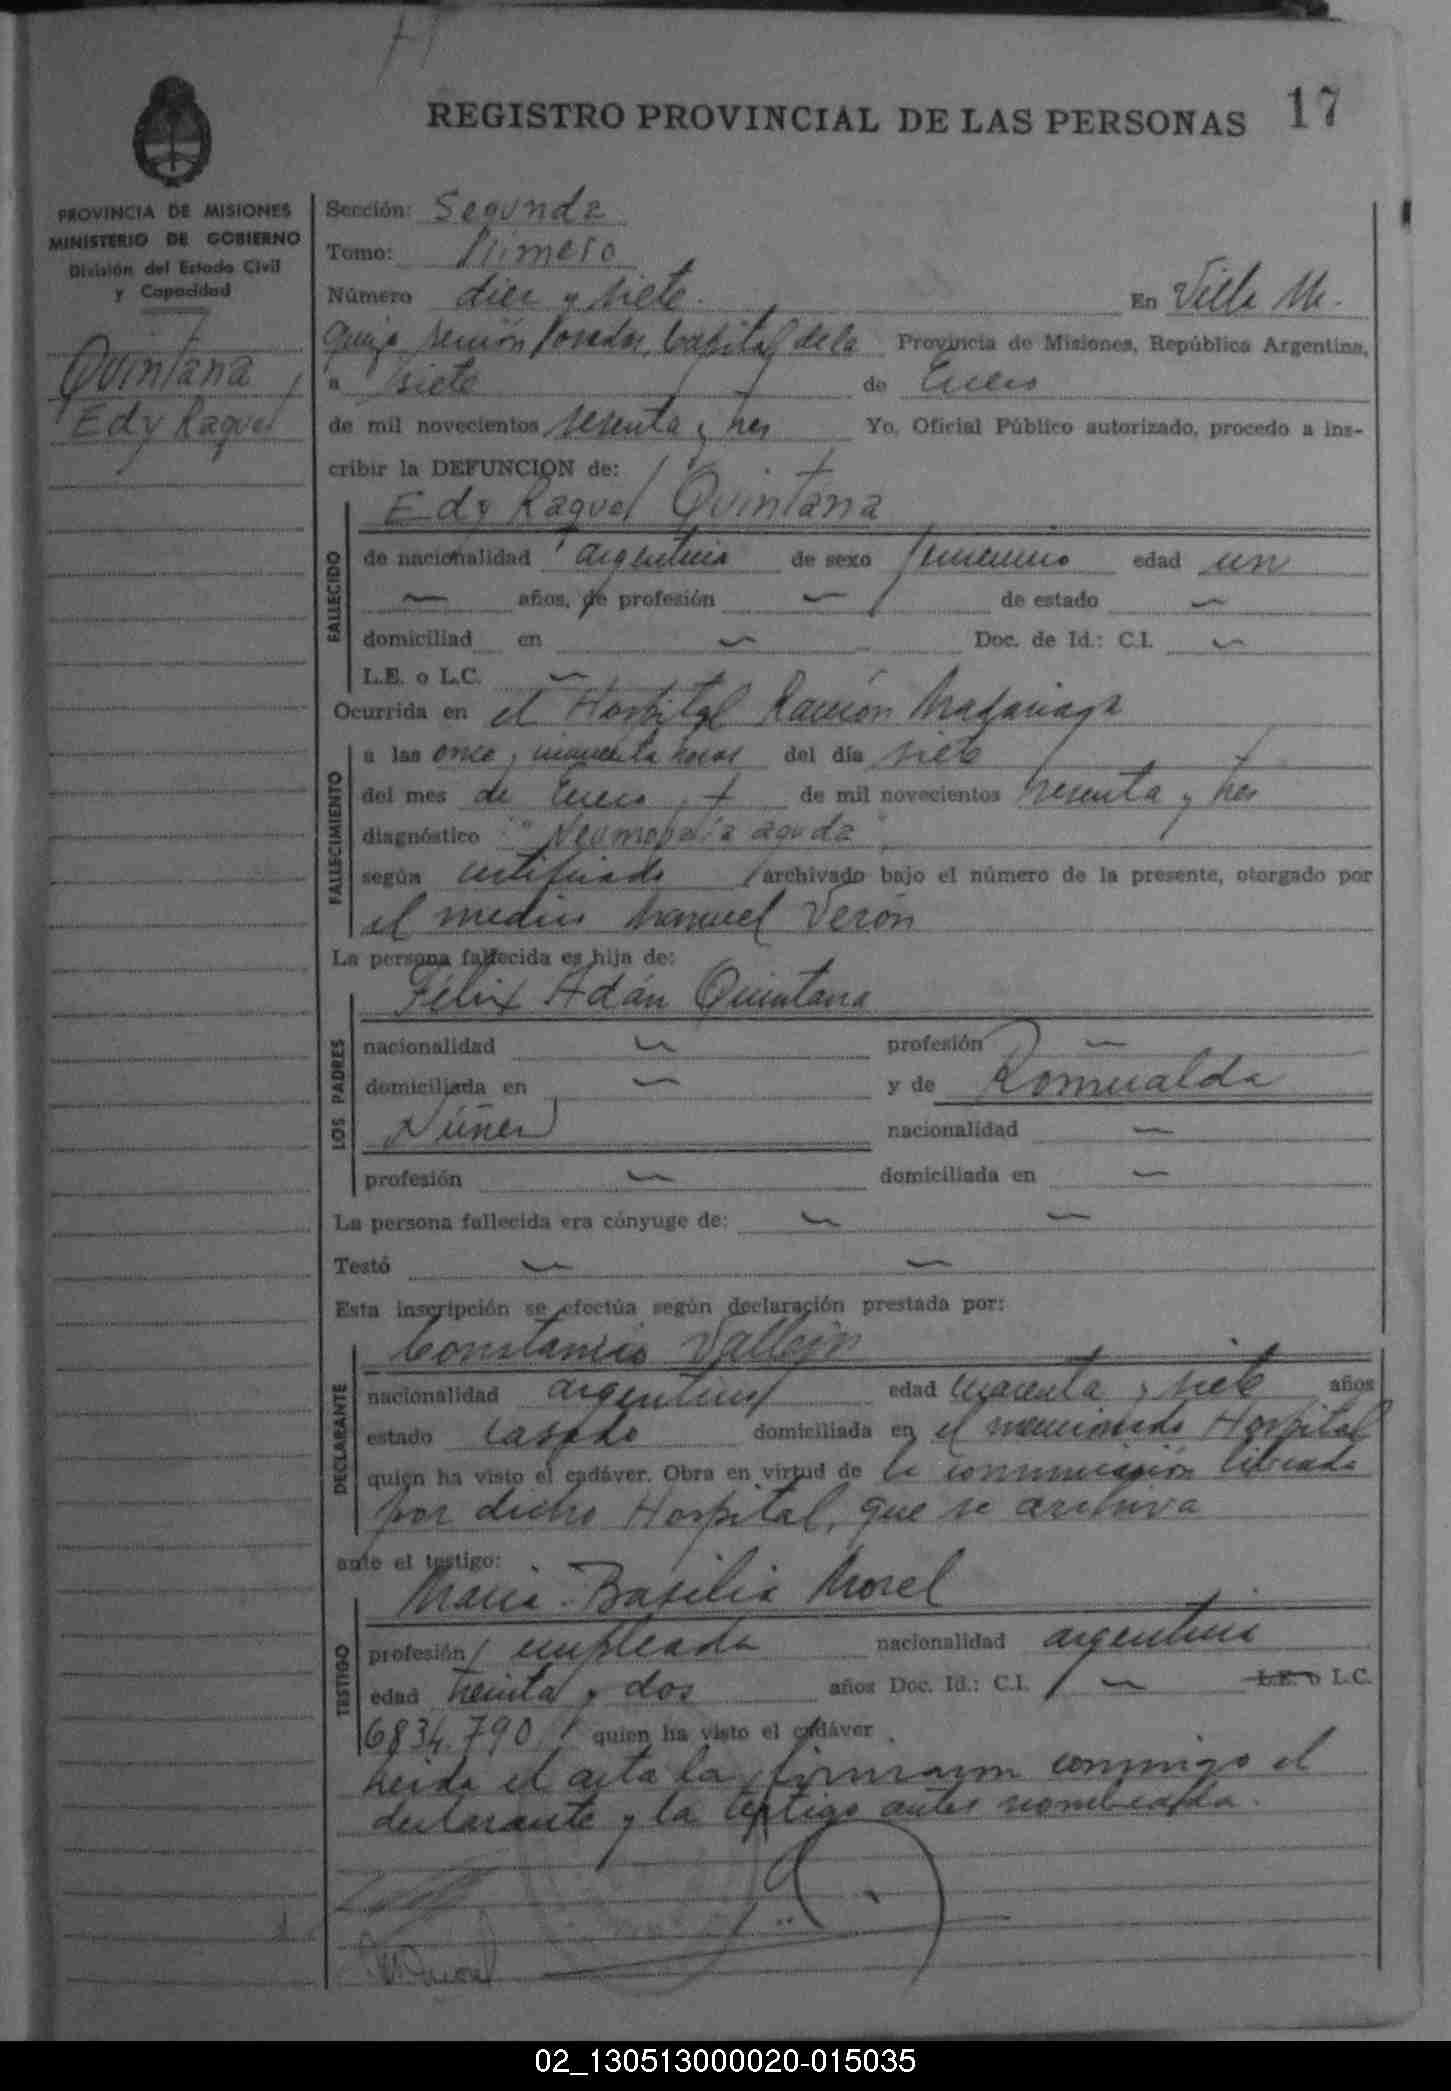 REGISTRO PROVINCIAL DE LAS PERSONAS 17
PROVINCIA DE MISIONES
MINISTERIO DE GOBIERNO
División del Estado Civil
y Capacidad
17
Quintana
Edy Raquel
Sección: Segunda
Tomo: Primero
Número diez y siete. En Villa Ur-
quiza sección Posadas, Capital de la Provincia de Misiones, República Argentina,
a siete de Enero
de mil novecientos sesenta y tres Yo, Oficial Público autorizado, procedo a ins-
cribir la DEFUNCION de:
Edy Raquel Quintana
FALLECIDO
de nacionalidad argentina de sexo femenino edad un
— años, de profesión — de estado —
domiciliad en — Doc. de Id.: C.I. —
L.E. o L.C. —
Ocurrida en el Hospital Ramón Madariaga
FALLECIMIENTO
a las once y cuarenta horas del día siete
del mes de Enero de mil novecientos sesenta y tres
diagnóstico "Neumopatía aguda"
según certificado archivado bajo el número de la presente, otorgado por
el médico Manuel Verón
La persona fallecida es hija de:
Félix Adán Quintana
LOS PADRES
nacionalidad — profesión —
domiciliada en — y de Romualda
Núñez nacionalidad —
profesión — domiciliada en —
La persona fallecida era cónyuge de: — —
Testó — —
Esta inscripción se efectúa según declaración prestada por:
Constancio Vallejos
DECLARANTE
nacionalidad argentino edad cuarenta y siete años
estado casado domiciliada en el mencionado Hospital
quien ha visto el cadáver. Obra en virtud de la comunicación librada
por dicho Hospital, que se archiva
ante el testigo:
María Basilia Morel
TESTIGO
profesión empleada nacionalidad argentina
edad treinta y dos años Doc. Id.: C.I. — L.E. o L.C.
6834.790 quien ha visto el cadáver.
Leída el acta la firmaron conmigo el
declarante y la testigo antes nombrada.
02_130513000020-015035